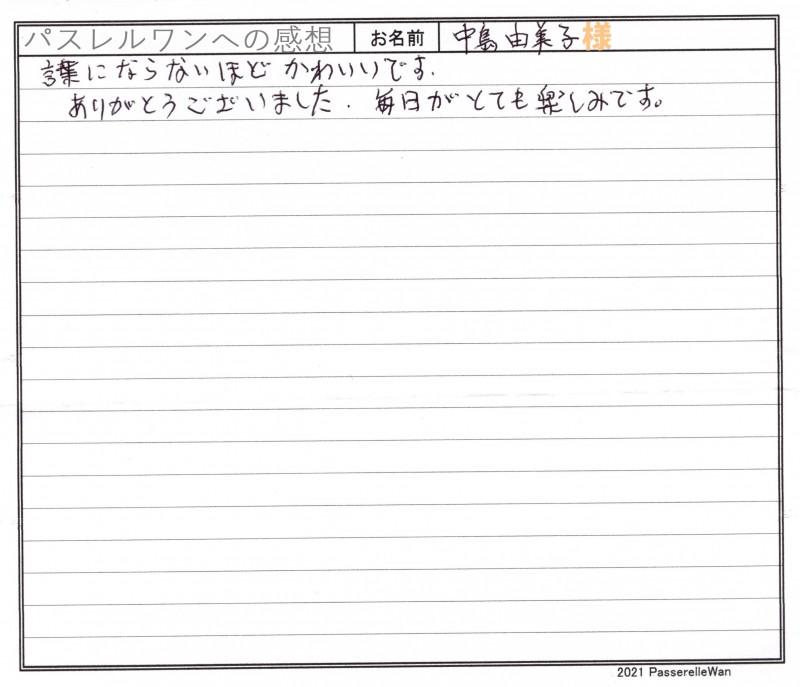 パスレルワンへの感想 お名前 中島由美子様
言葉にならないほど かわいいです.
ありがとうございました. 毎日がとても楽しみです。
2021 PasserelleWan